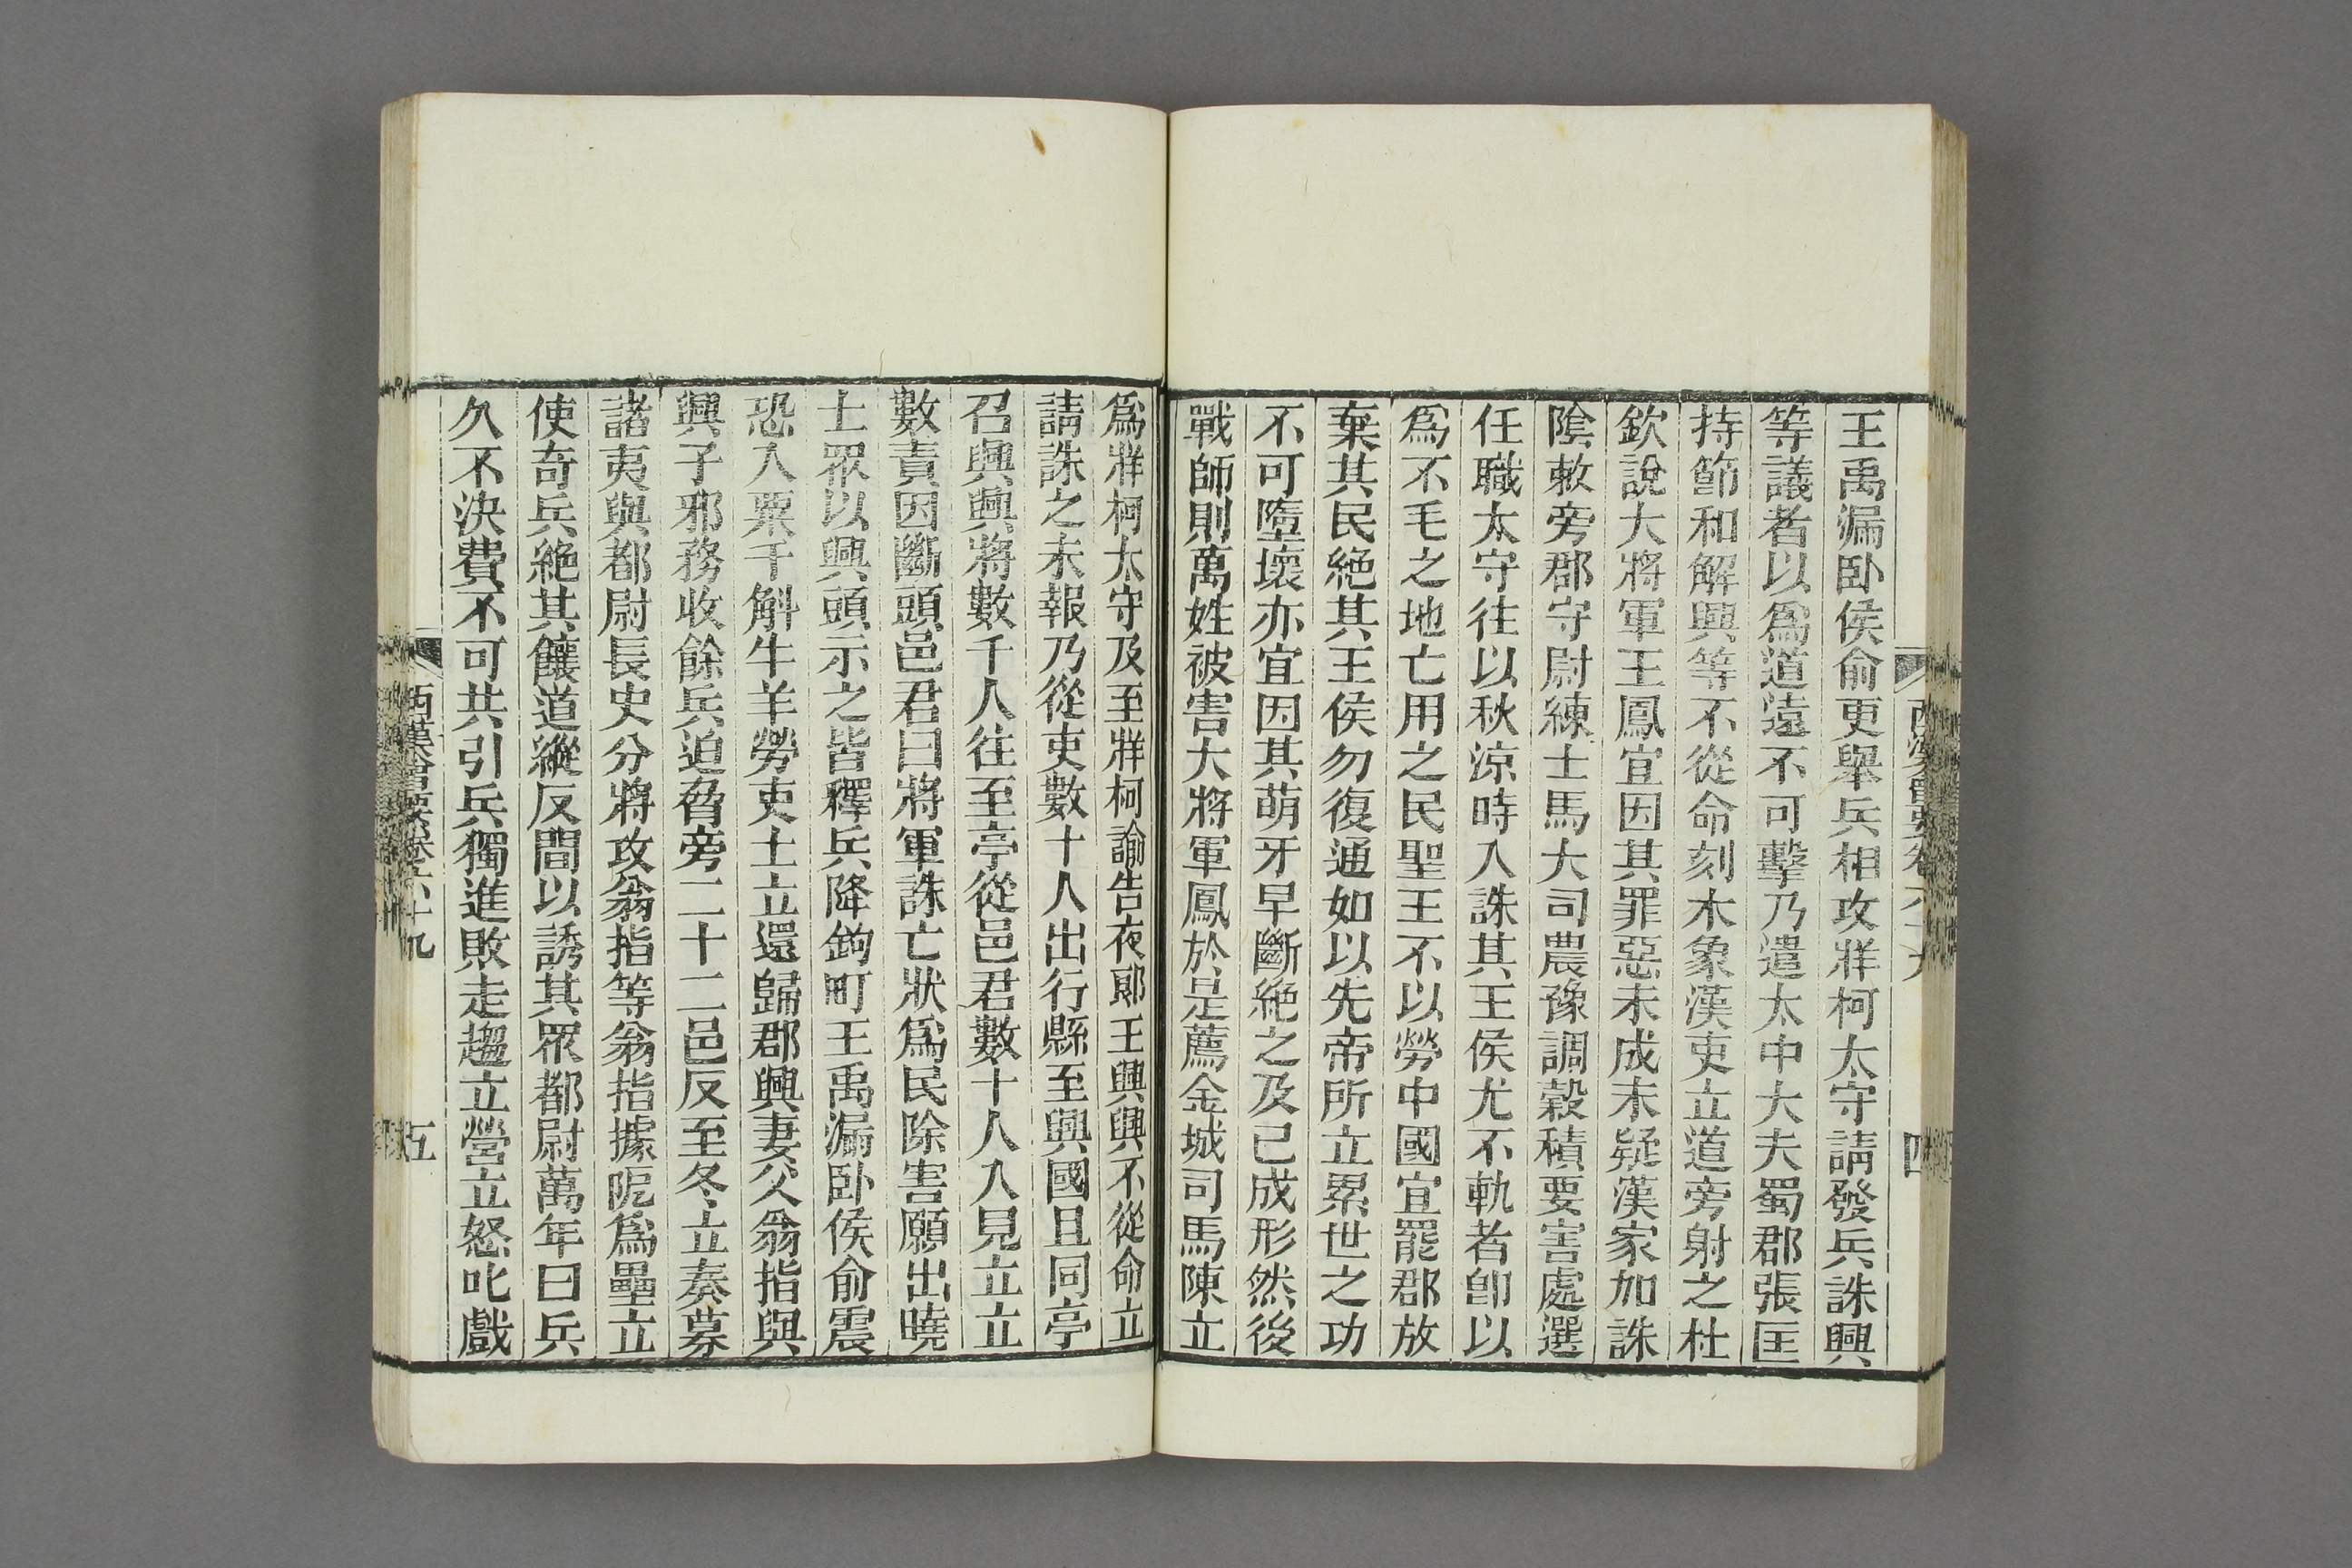 王禹漏卧侯俞更舉兵相攻牂柯太守請發兵誅興
等議者以爲道遠不可擊乃遣太中大夫蜀郡張匡
持節和解興等不從命刻木象漢吏立道旁射之杜
欽說大將軍王鳳宜因其罪惡未成未疑漢家加誅
陰敕旁郡守尉練士馬大司農豫調穀積要害處選
任職太守往以秋涼時入誅其王侯尤不軌者卽以
爲不毛之地亡用之民聖王不以勞中國宜罷郡放
棄其民絕其王侯勿復通如以先帝所立累世之功
不可墮壞亦宜因其萌牙早斷絕之及已成形然後
戰師則萬姓被害大將軍鳳於是薦金城司馬陳立
爲牂柯太守及至牂柯諭告夜郞王興興不從命立
請誅之未報乃從吏數十人出行縣至興國且同亭
召興興將數千人往至亭從邑君數十人入見立立
數責因斷頭邑君曰將軍誅亡狀爲民除害願出曉
士眾以興頭示之皆釋兵降鉤町王禹漏卧侯俞震
恐入粟千斛牛羊勞吏士立還歸郡興妻父翁指與
興子邪務收餘兵迫脅旁二十二邑反至冬立奏募
諸夷與都尉長史分將攻翁指等翁指據阸爲壘立
使奇兵絕其饟道縱反間以誘其眾都尉萬年曰兵
久不決費不可共引兵獨進敗走趨立營立怒叱戲
西漢會要卷六十九
五
西漢會要卷六十九
四